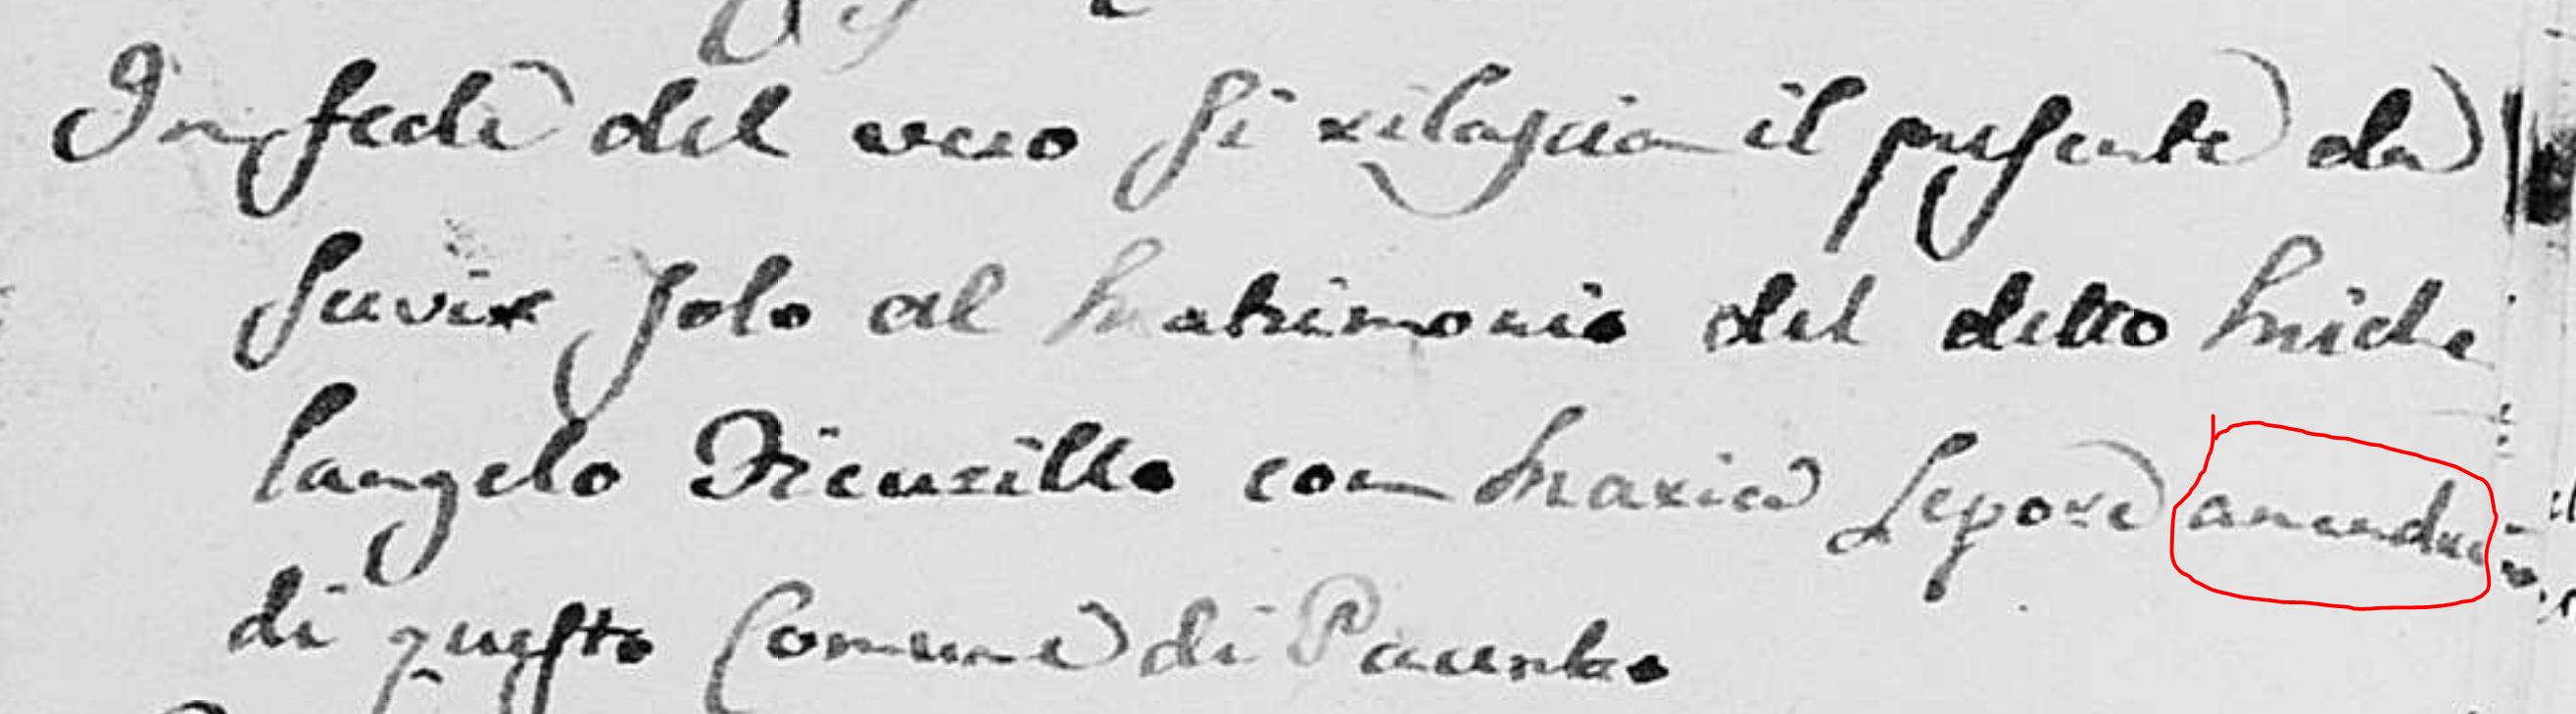 In fede del vero si rilascia il presente da
servir solo al Matrimonio del detto Miche
langelo Ficusillo con Maria Lepore amendue
di questo Comune di